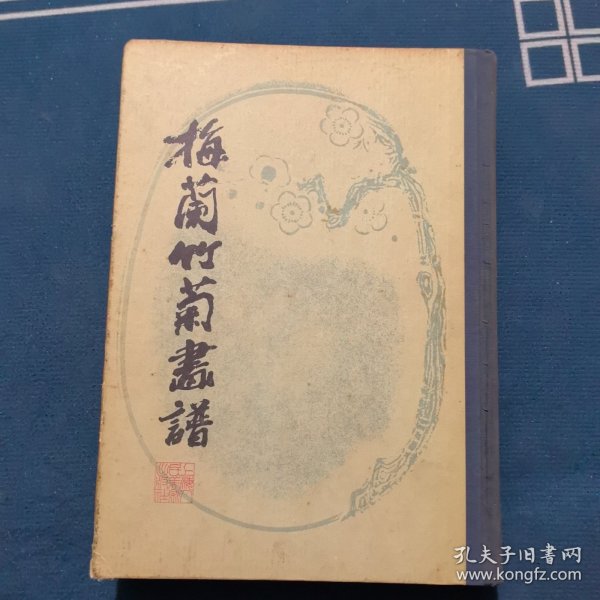 梅蘭竹菊畫譜
孔夫子旧書网
www.kongfz.com